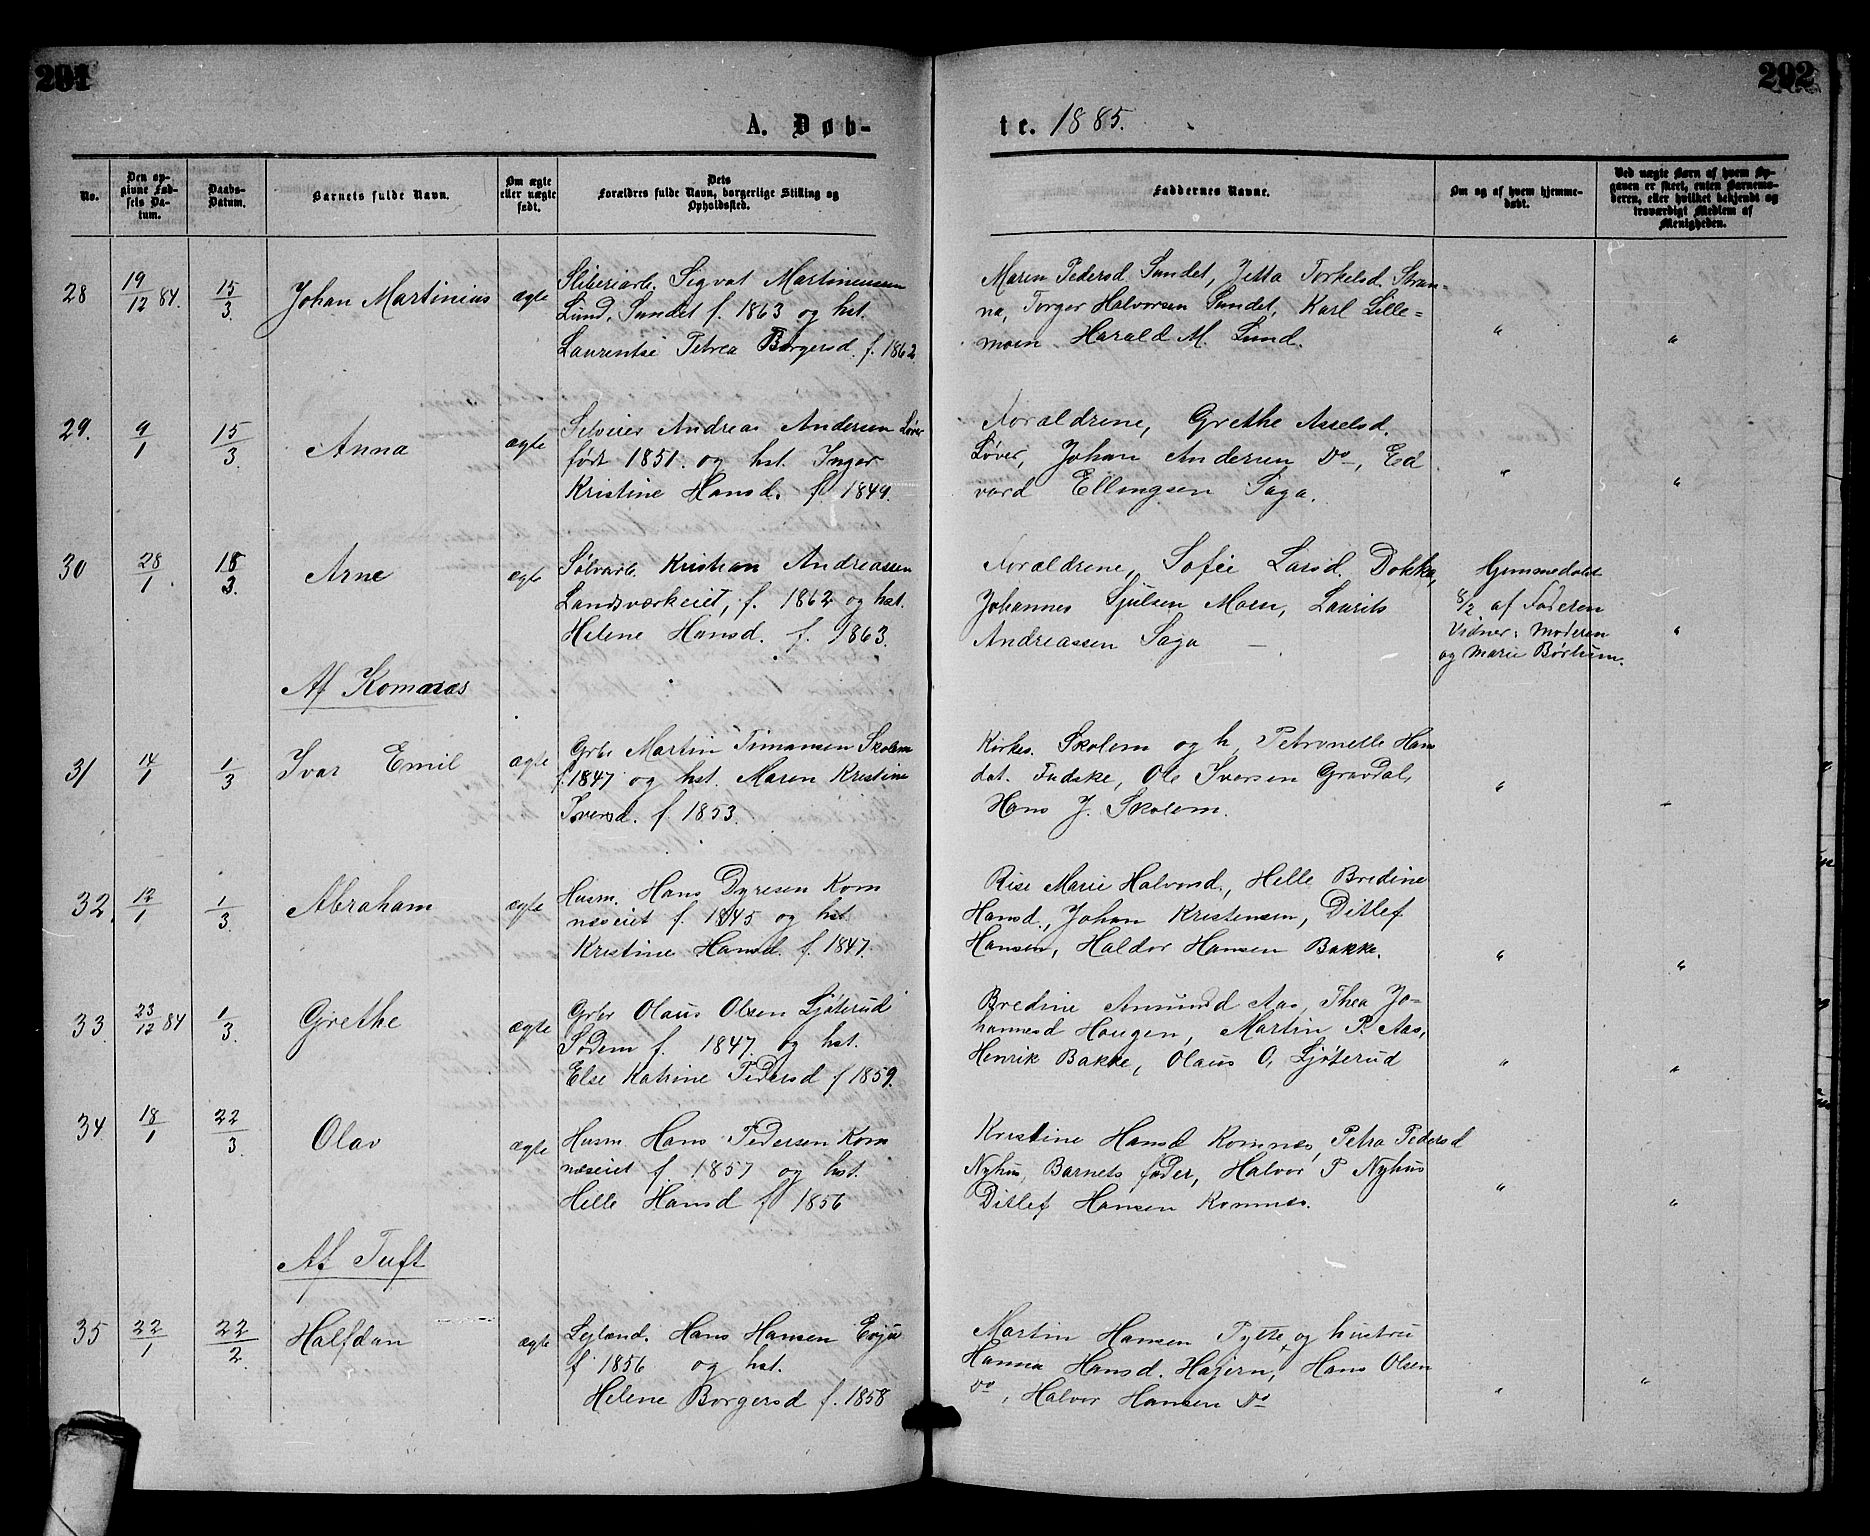 291
292
A. Døb-
te. 1885.
No.
Den op-
givne Fød-
sels Da-
tum.
Daabs-
Datum.
Barnets fulde Navn.
Om ægte
eller uægte
født.
Dets
Forældres fulde Navn, borgerlige Stilling og
Opholdssted.
Faddernes Navne.
Om og af hvem hjemme-
døbt.
Ved uægte Børn af hvem Op-
gaven er skeet, enten Barnemo-
deren, eller hvilket bekjendt og
troværdigt Medlem af
Menigheden.
28
19/12 84.
15/3.
Johan Martinius
ægte
Sliberiarb. Sigvat Martinussen
Lund, Sundet f. 1863 og hst.
Laurentse Petrea Borgersd. f. 1862
Maren Pedersd. Sundet, Jetta Torkelsd. Stran-
na, Torger Halvorsen Sundet, Karl Lille=
moen Harald M. Lund.
"
"
29.
9/1
15/3.
Anna
ægte
Selveier Andreas Andersen Løver
født 1851. og hst. Inger
Kristine Hansd. f. 1849.
Forældrene, Grethe Asselsd.
Løver, Johan Andersen Do, Ed
vard Ellingsen Saga.
"
"
30
28/1.
15/3.
Arne
ægte
Sølvarb. Kristian Andreassen
Landsværkeiet, f. 1862 og hst.
Helene Hansd. f. 1863.
Forældrene, Sofie Larsd. Dokka,
Johannes Gjulsen Moen, Laurits
Andreassen Saga
Hjemmedøbt
8/2 af Faderen
Vidner: Moderen
og Marie Børtum.
"
Af Komnæs
31
14/1
1/3
Ivar Emil
ægte
Grbr Martin Timansen Skolem
f. 1847 og hst. Maren Kristine
Iversd. f. 1853.
Kirkes. Skolem og h. Petronelle Hans
dat. Fudske, Ole Iversen Gravdal,
Hans J. Skolem.
"
32.
12/1
1/3.
Abraham
ægte
Husm. Hans Dyresen Kom
næseiet f. 1845 og hst.
Kristine Hansd. f. 1847.
Rise Marie Halvorsd., Helle Bredine
Hansd., Johan Kristensen, Ditlef
Hansen, Haldor Hansen Bakke.
"
"
33.
23/12 84
1/3.
Grethe
ægte
Grbr Olaus Olsen Ljøterud
Sødem f. 1847. og hst.
Else Katrine Pedersd f 1859.
Bredine Amund Aas, Thea Jo-
hannesd Haugen, Martin P. Aas,
Henrik Bakke, Olaus O. Ljøterud
"
"
34
18/1
22/3.
Olav
ægte
Husm. Hans Pedersen Kom
næseiet f. 1857 og hst.
Helle Hansd f 1856
Kristine Hansd Komnes, Petra Pedersd
Nyhus, Barnets fader, Halvor P Nyhus
Ditlef Hansen Komnes.
"
"
Af Tuft
35
22/1
22/2.
Halfdan
ægte
Lejlænd. Hans Hansen Evju
f 1856 og hst.
Helene Borgersd f. 1858
Martin Hansen Tytte og hustru
Hanna Hansd. Hajern, Hans Olsen
Do, Halvor Hansen Do
"
"